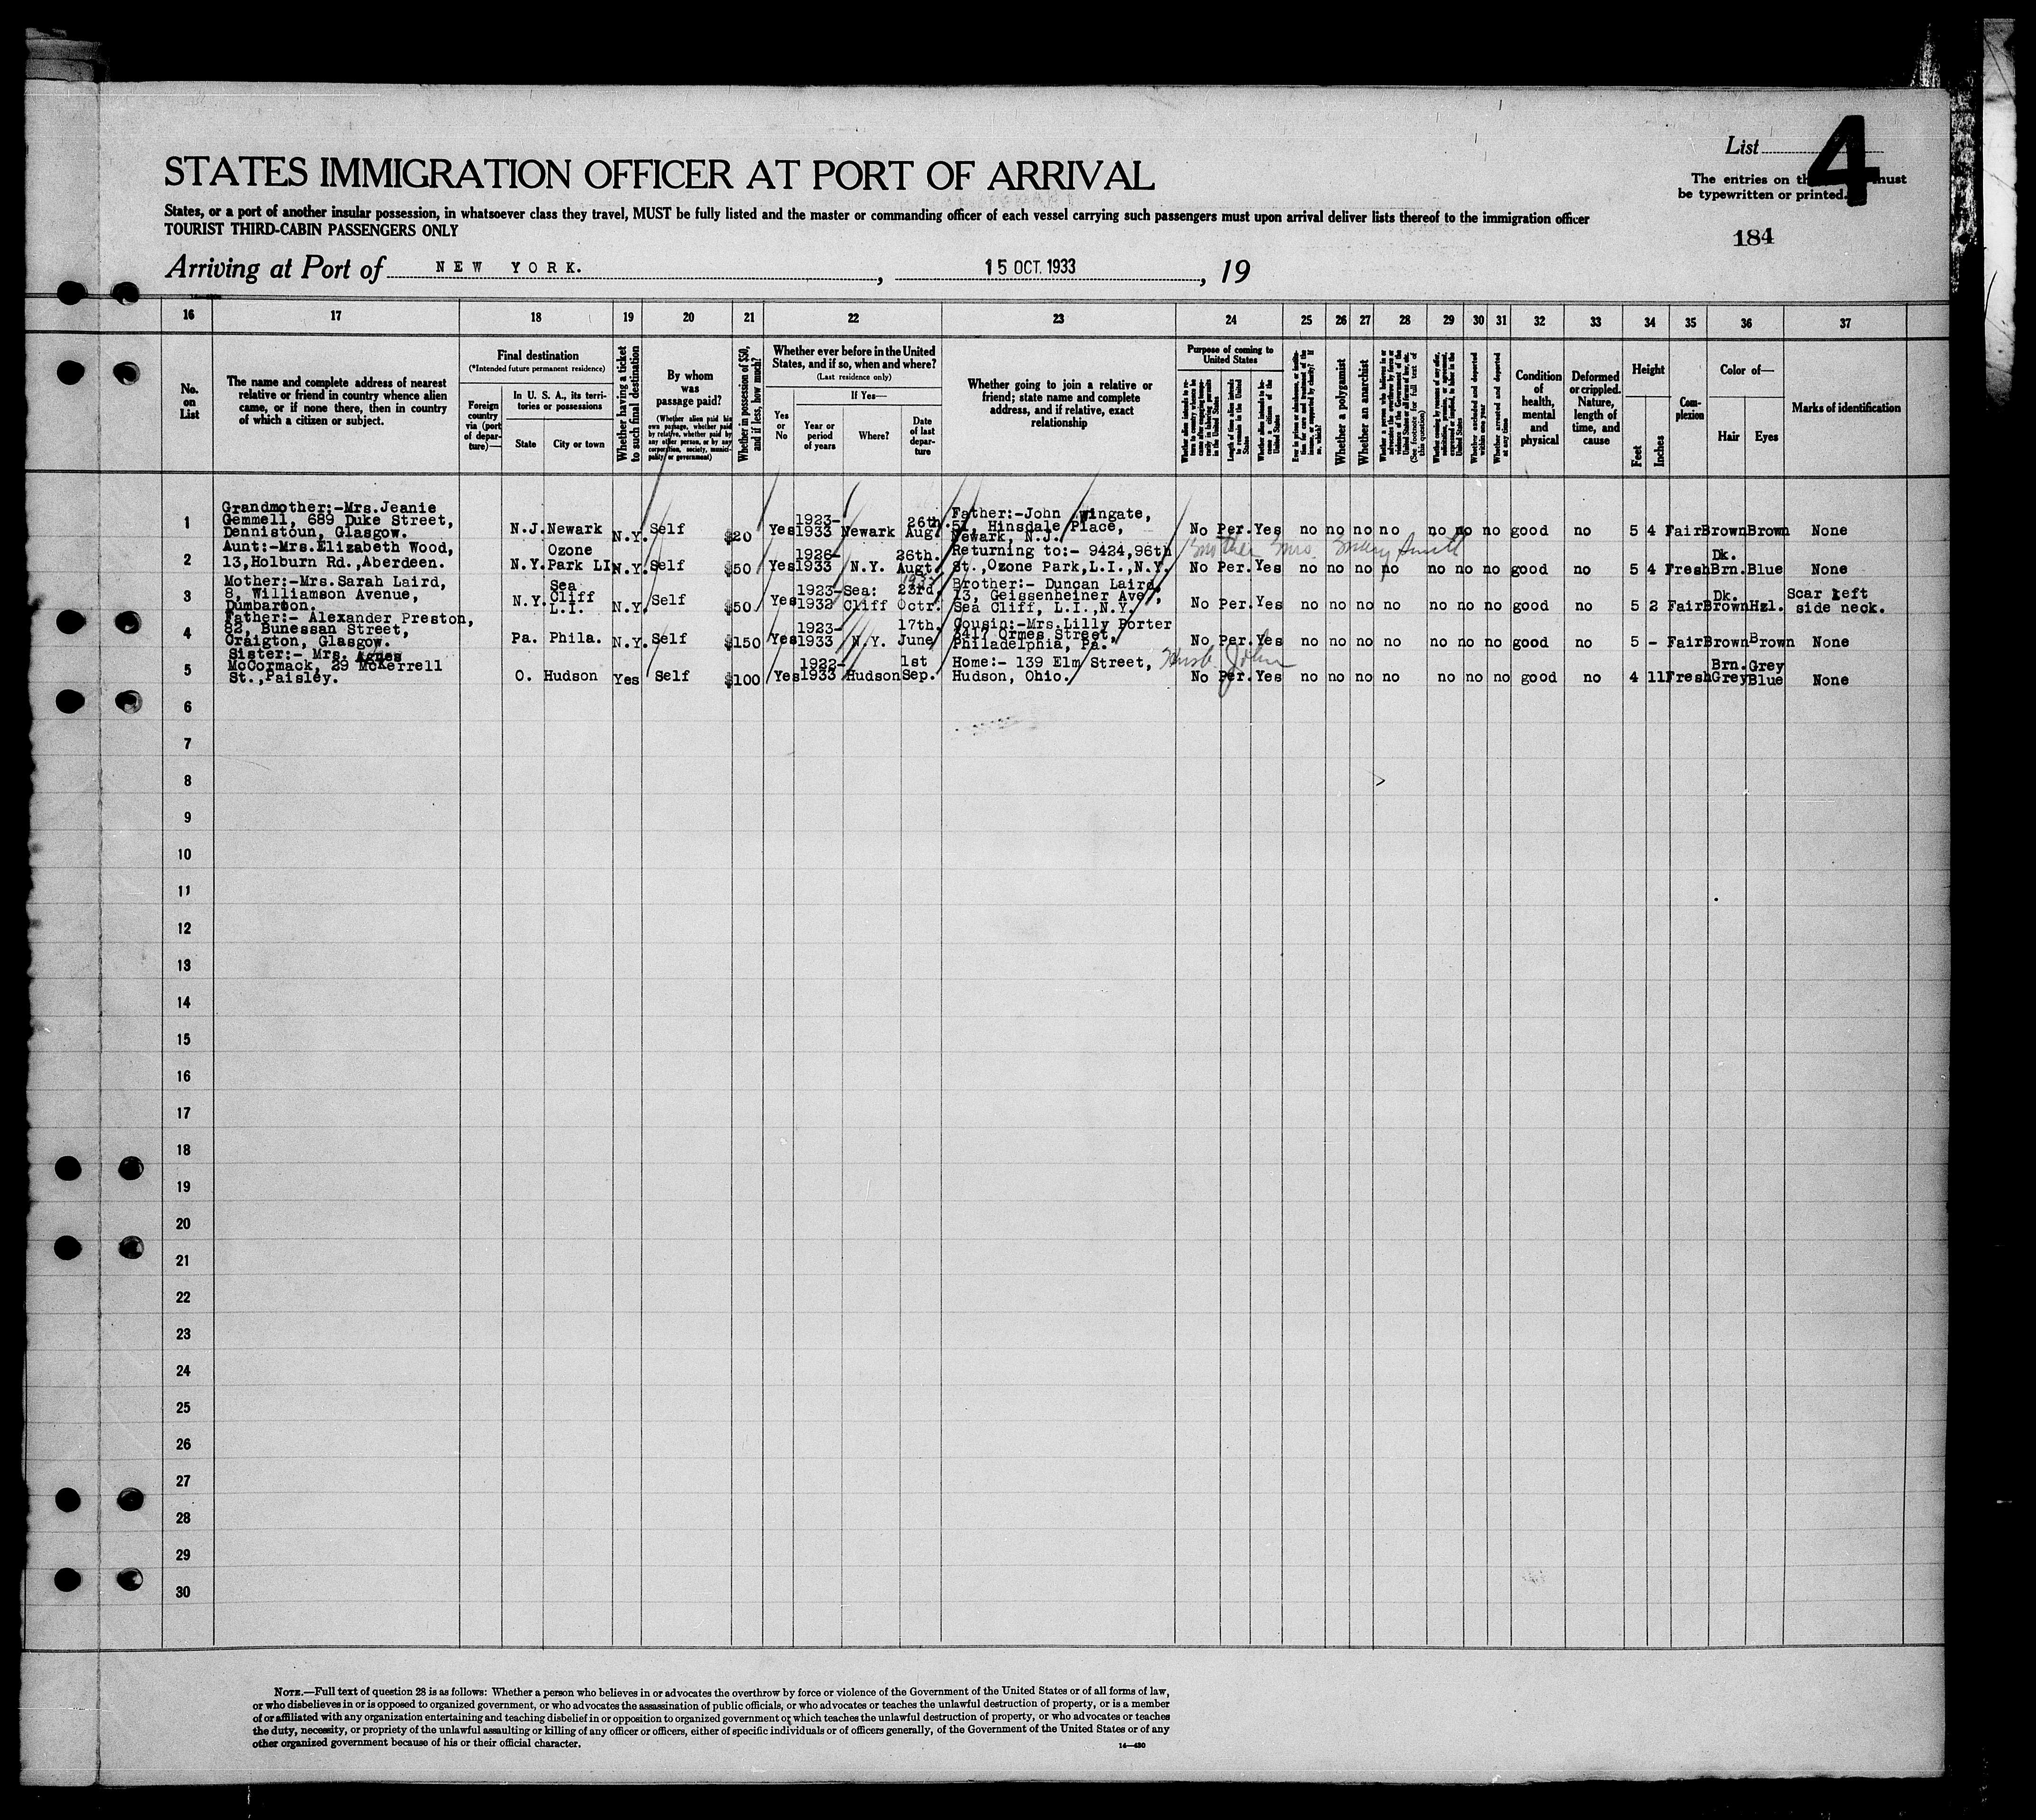 List
4
The entries on th must
be typewritten or printed.
184
STATES IMMIGRATION OFFICER AT PORT OF ARRIVAL
States, or a port of another insular possession, in whatsoever class they travel, MUST be fully listed and the master or commanding officer of each vessel carrying such passengers must upon arrival deliver lists thereof to the immigration officer
TOURIST THIRD-CABIN PASSENGERS ONLY
Arriving at Port of NEW YORK. , 15 OCT. 1933 , 19
16 17 18 19 20 21 22 23 24 25 26 27 28 29 30 31 32 33 34 35 36 37
No. on List
The name and complete address of nearest
relative or friend in country whence alien
came, or if none there, then in country
of which a citizen or subject.
Final destination
(*Intended future permanent residence)
Foreign country via (port of departure)—
In U. S. A., its territories or possessions
State
City or town
Whether having a ticket to such final destination
By whom was passage paid?
(Whether alien paid his own passage, whether paid by relative, whether paid by any other person, or by any corporation, society, municipality, or government)
Whether in possession of $50, and if less, how much?
Whether ever before in the United
States, and if so, when and where?
(Last residence only)
Yes or No
If Yes—
Year or period of years
Where?
Date of last departure
Whether going to join a relative or
friend; state name and complete
address, and if relative, exact
relationship
Purpose of coming to United States
Length of time alien intends to remain in the United States
Whether alien intends to become a citizen of the United States
Whether a polygamist
Whether an anarchist
(See footnote for full text of this question)
Whether arrested and deported at any time
Condition of health, mental and physical
Deformed or crippled. Nature, length of time, and cause
Height
Feet
Inches
Complexion
Color of—
Hair
Eyes
Marks of identification
1 Grandmother:-Mrs.Jeanie
Gemmell, 689 Duke Street,
Dennistoun, Glasgow.
N.J. Newark N.Y. Self $20 Yes 1923-1933 Newark 26th. Aug.
Father:-John Wingate,
51, Hinsdale Place,
Newark, N.J.
No Per. Yes no no no no no no no good no 5 4 Fair Brown Brown None
2 Aunt:-Mrs.Elizabeth Wood,
13,Holburn Rd.,Aberdeen.
N.Y. Ozone Park LI N.Y. Self $50 Yes 1926-1933 N.Y. 26th. Augt.
Returning to:- 9424,96th
St.,Ozone Park,L.I.,N.Y.
Mrs.
No Per. Yes no no no no no no no good no 5 4 Fresh Dk. Brn. Blue None
3 Mother:-Mrs.Sarah Laird,
8, Williamson Avenue,
Dumbarton.
N.Y. Sea Cliff L.I. N.Y. Self $50 Yes 1923-1932 Sea: Cliff 23rd, Octr.
Brother:- Duncan Laird,
13, Geissenheiner Ave.,
Sea Cliff, L.I.,N.Y.
No Per. Yes no no no no no no no good no 5 2 Fair Dk. Brown Hzl. Scar left side neck.
4 Father:- Alexander Preston,
82, Bunessan Street,
Craigton, Glasgow.
Pa. Phila. N.Y. Self $150 Yes 1923-1933 N.Y. 17th, June
Cousin:-Mrs.Lilly Porter
2417 Ormes Street,
Philadelphia, Pa.
No Per. Yes no no no no no no no good no 5 - Fair Brown Brown None
5 Sister:- Mrs. Agnes
McCormack, 29 McKerrell
St.,Paisley.
O. Hudson Yes Self $100 Yes 1922-1933 Hudson 1st Sep.
Home:- 139 Elm Street,
Hudson, Ohio.
Husb. John
No Per. Yes no no no no no no no good no 4 11 Fresh Brn. Grey Grey Blue None
6
7
8
9
10
11
12
13
14
15
16
17
18
19
20
21
22
23
24
25
26
27
28
29
30
NOTE.—Full text of question 28 is as follows: Whether a person who believes in or advocates the overthrow by force or violence of the Government of the United States or of all forms of law,
or who disbelieves in or is opposed to organized government, or who advocates the assassination of public officials, or who advocates or teaches the unlawful destruction of property, or is a member
of or affiliated with any organization entertaining and teaching disbelief in or opposition to organized government or which teaches the unlawful destruction of property, or who advocates or teaches
the duty, necessity, or propriety of the unlawful assaulting or killing of any officer or officers, either of specific individuals or of officers generally, of the Government of the United States or of any
other organized government because of his or their official character.
14—480